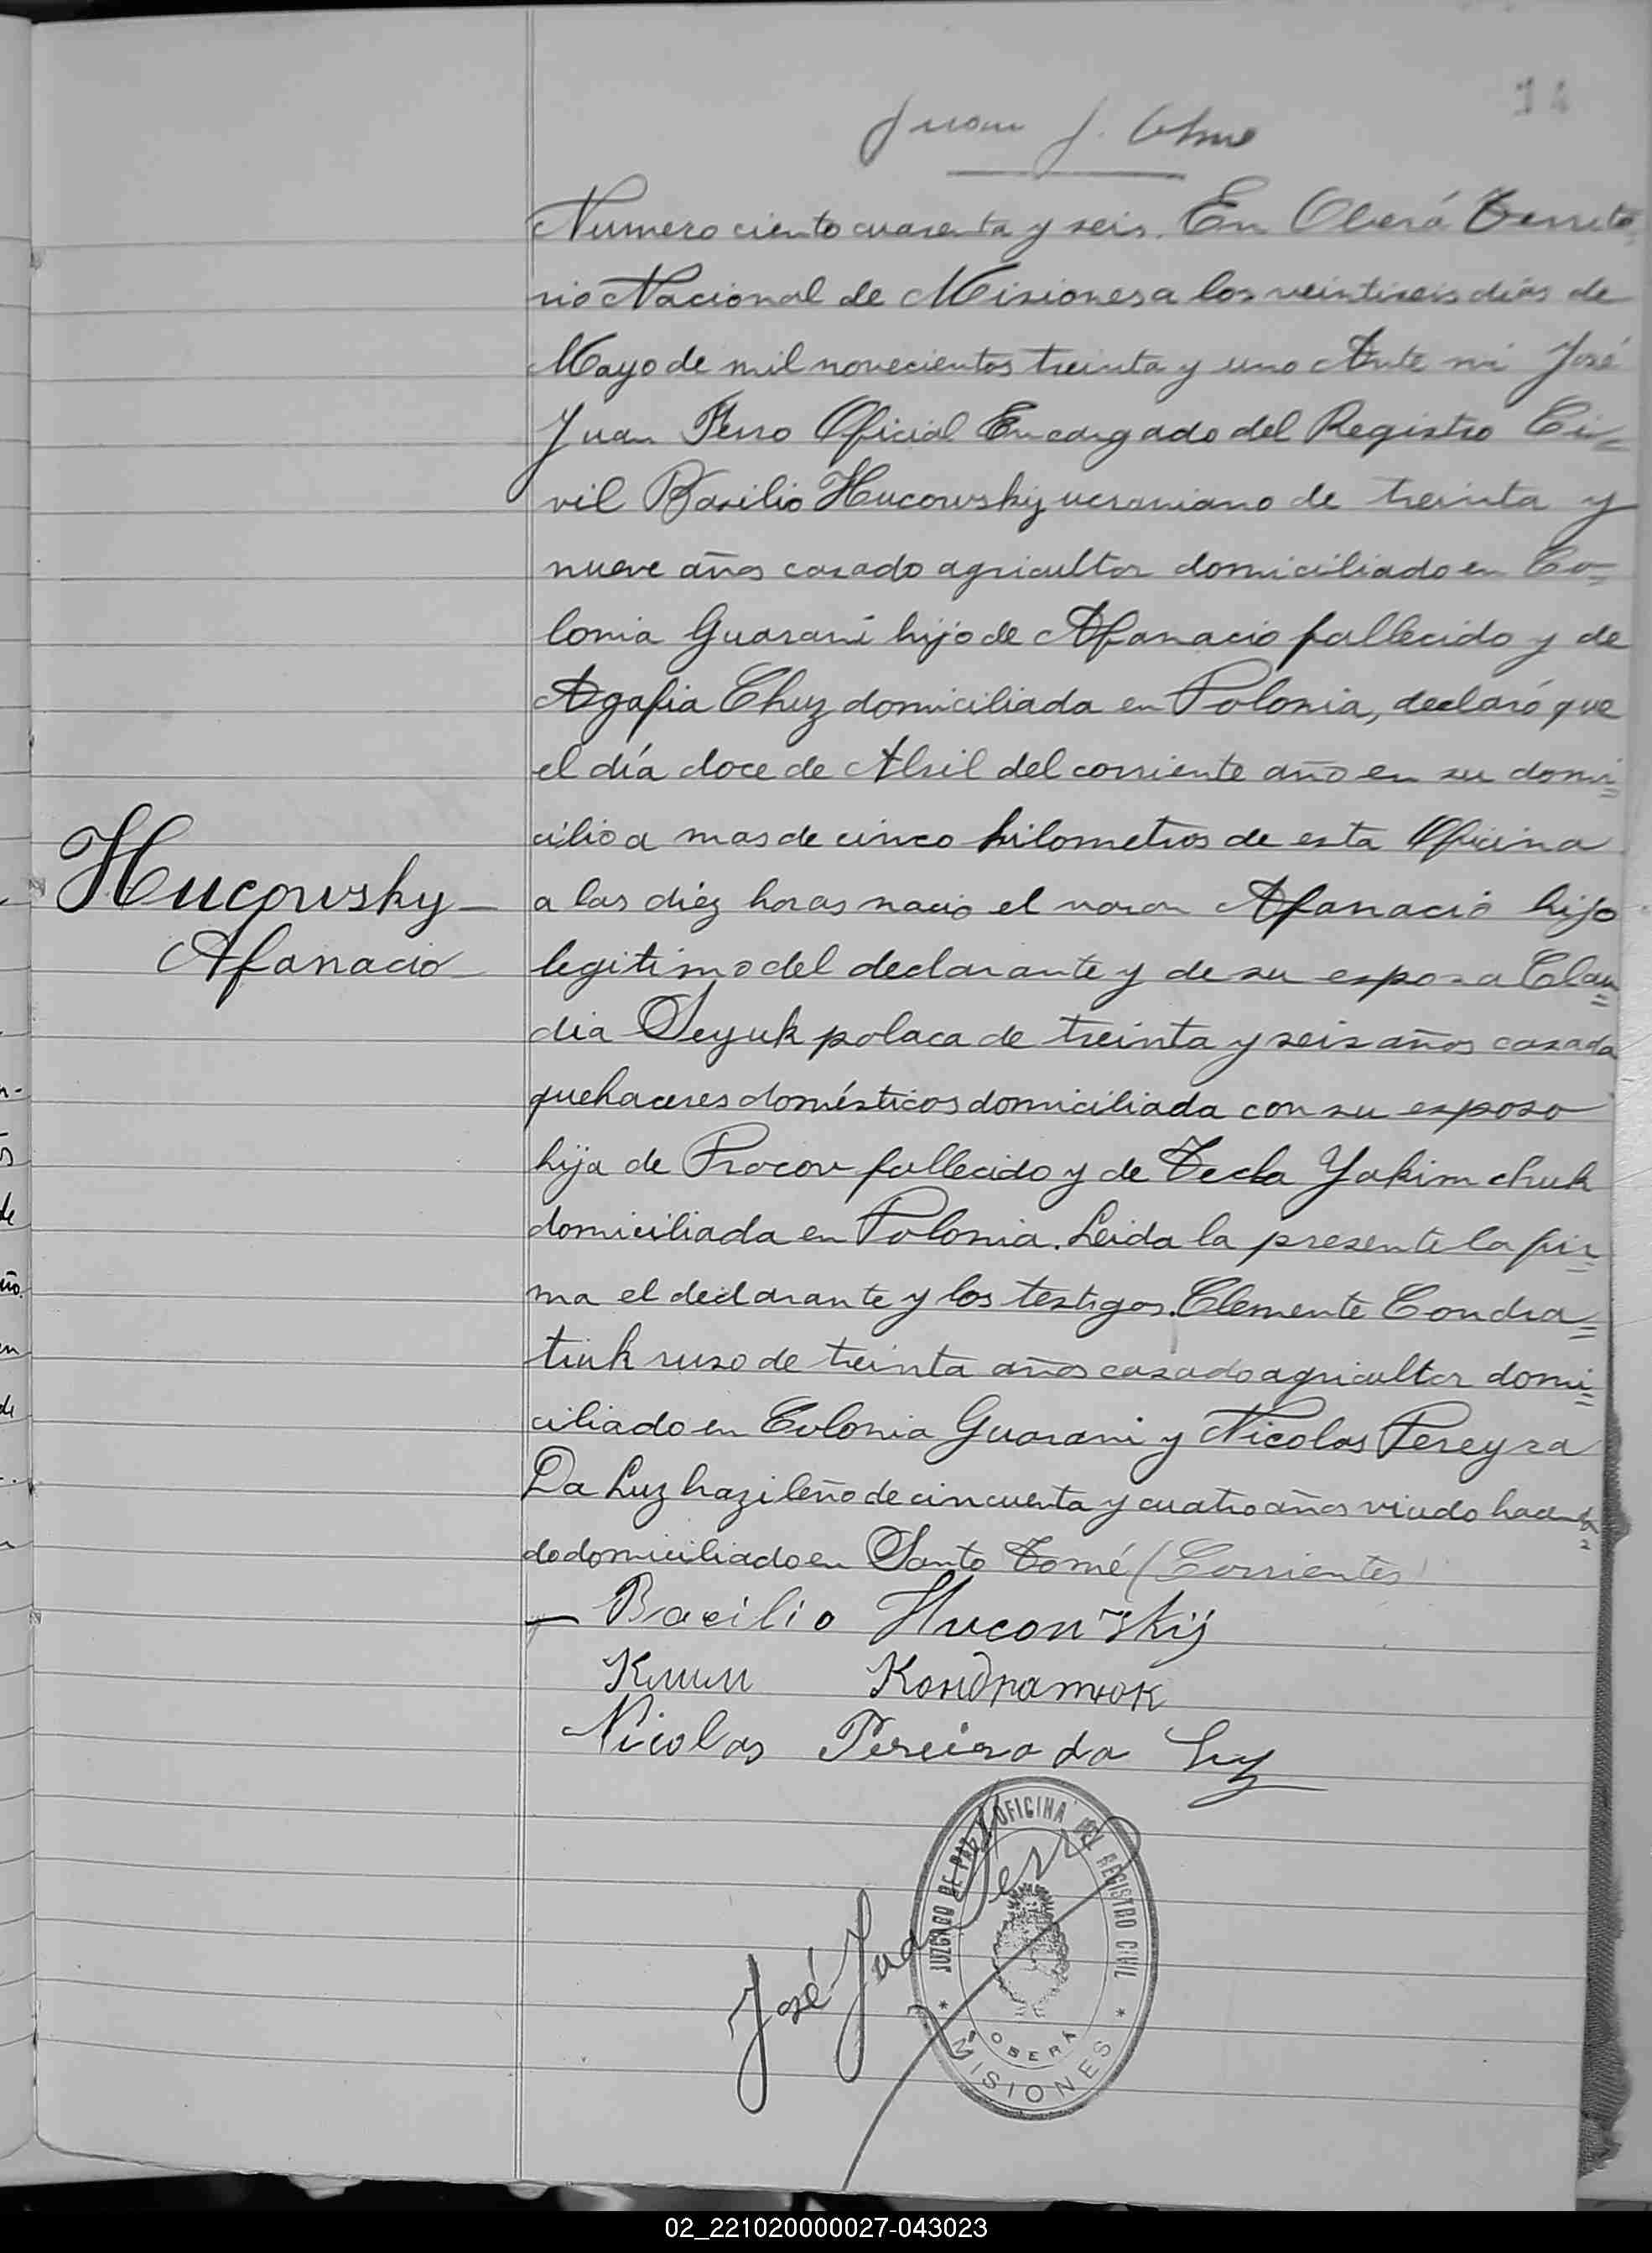 14
Juan J.
Numero ciento cuarenta y seis. En Oberá Territo-
rio Nacional de Misiones a los veintiseis dias de
Mayo de mil novecientos treinta y uno Ante mi José
Juan Ferro Oficial Encargado del Registro Ci=
vil Basilio Hucowsky ucraniano de treinta y
nueve años casado agricultor domiciliado en Co=
lonia Guarani hijo de Afanacio fallecido y de
Agafia Chuz domiciliada en Polonia, declaró que
el día doce de Abril del corriente año en su domi=
cilio a mas de cinco kilometros de esta Oficina
Hucowsky
a las diéz horas nacio el varon Afanacio hijo
Afanacio
legitimo del declarante y de su esposa Clau=
dia Seyuk polaca de treinta y seis años casada
quehaceres domésticos domiciliada con su esposo
hija de Procov fallecido y de Tecla Yakimchuk
domiciliada en Polonia. Leida la presente la fir=
ma el declarante y los testigos. Clemente Condra=
tiuk ruso de treinta años casado agricultor domi=
ciliado en Colonia Guarani y Nicolas Pereyra
Da Luz brazileño de cincuenta y cuatro años viudo hacenda=
do domiciliado en Santo Tomé (Corrientes)
Basilio Hucowskij
Клим Кондратюк
Nicolas Pereira da Luz
José Juan Ferro
JUZGADO DE PAZ Y OFICINA DEL REGISTRO CIVIL
* OBERÁ *
MISIONES
02_221020000027-043023